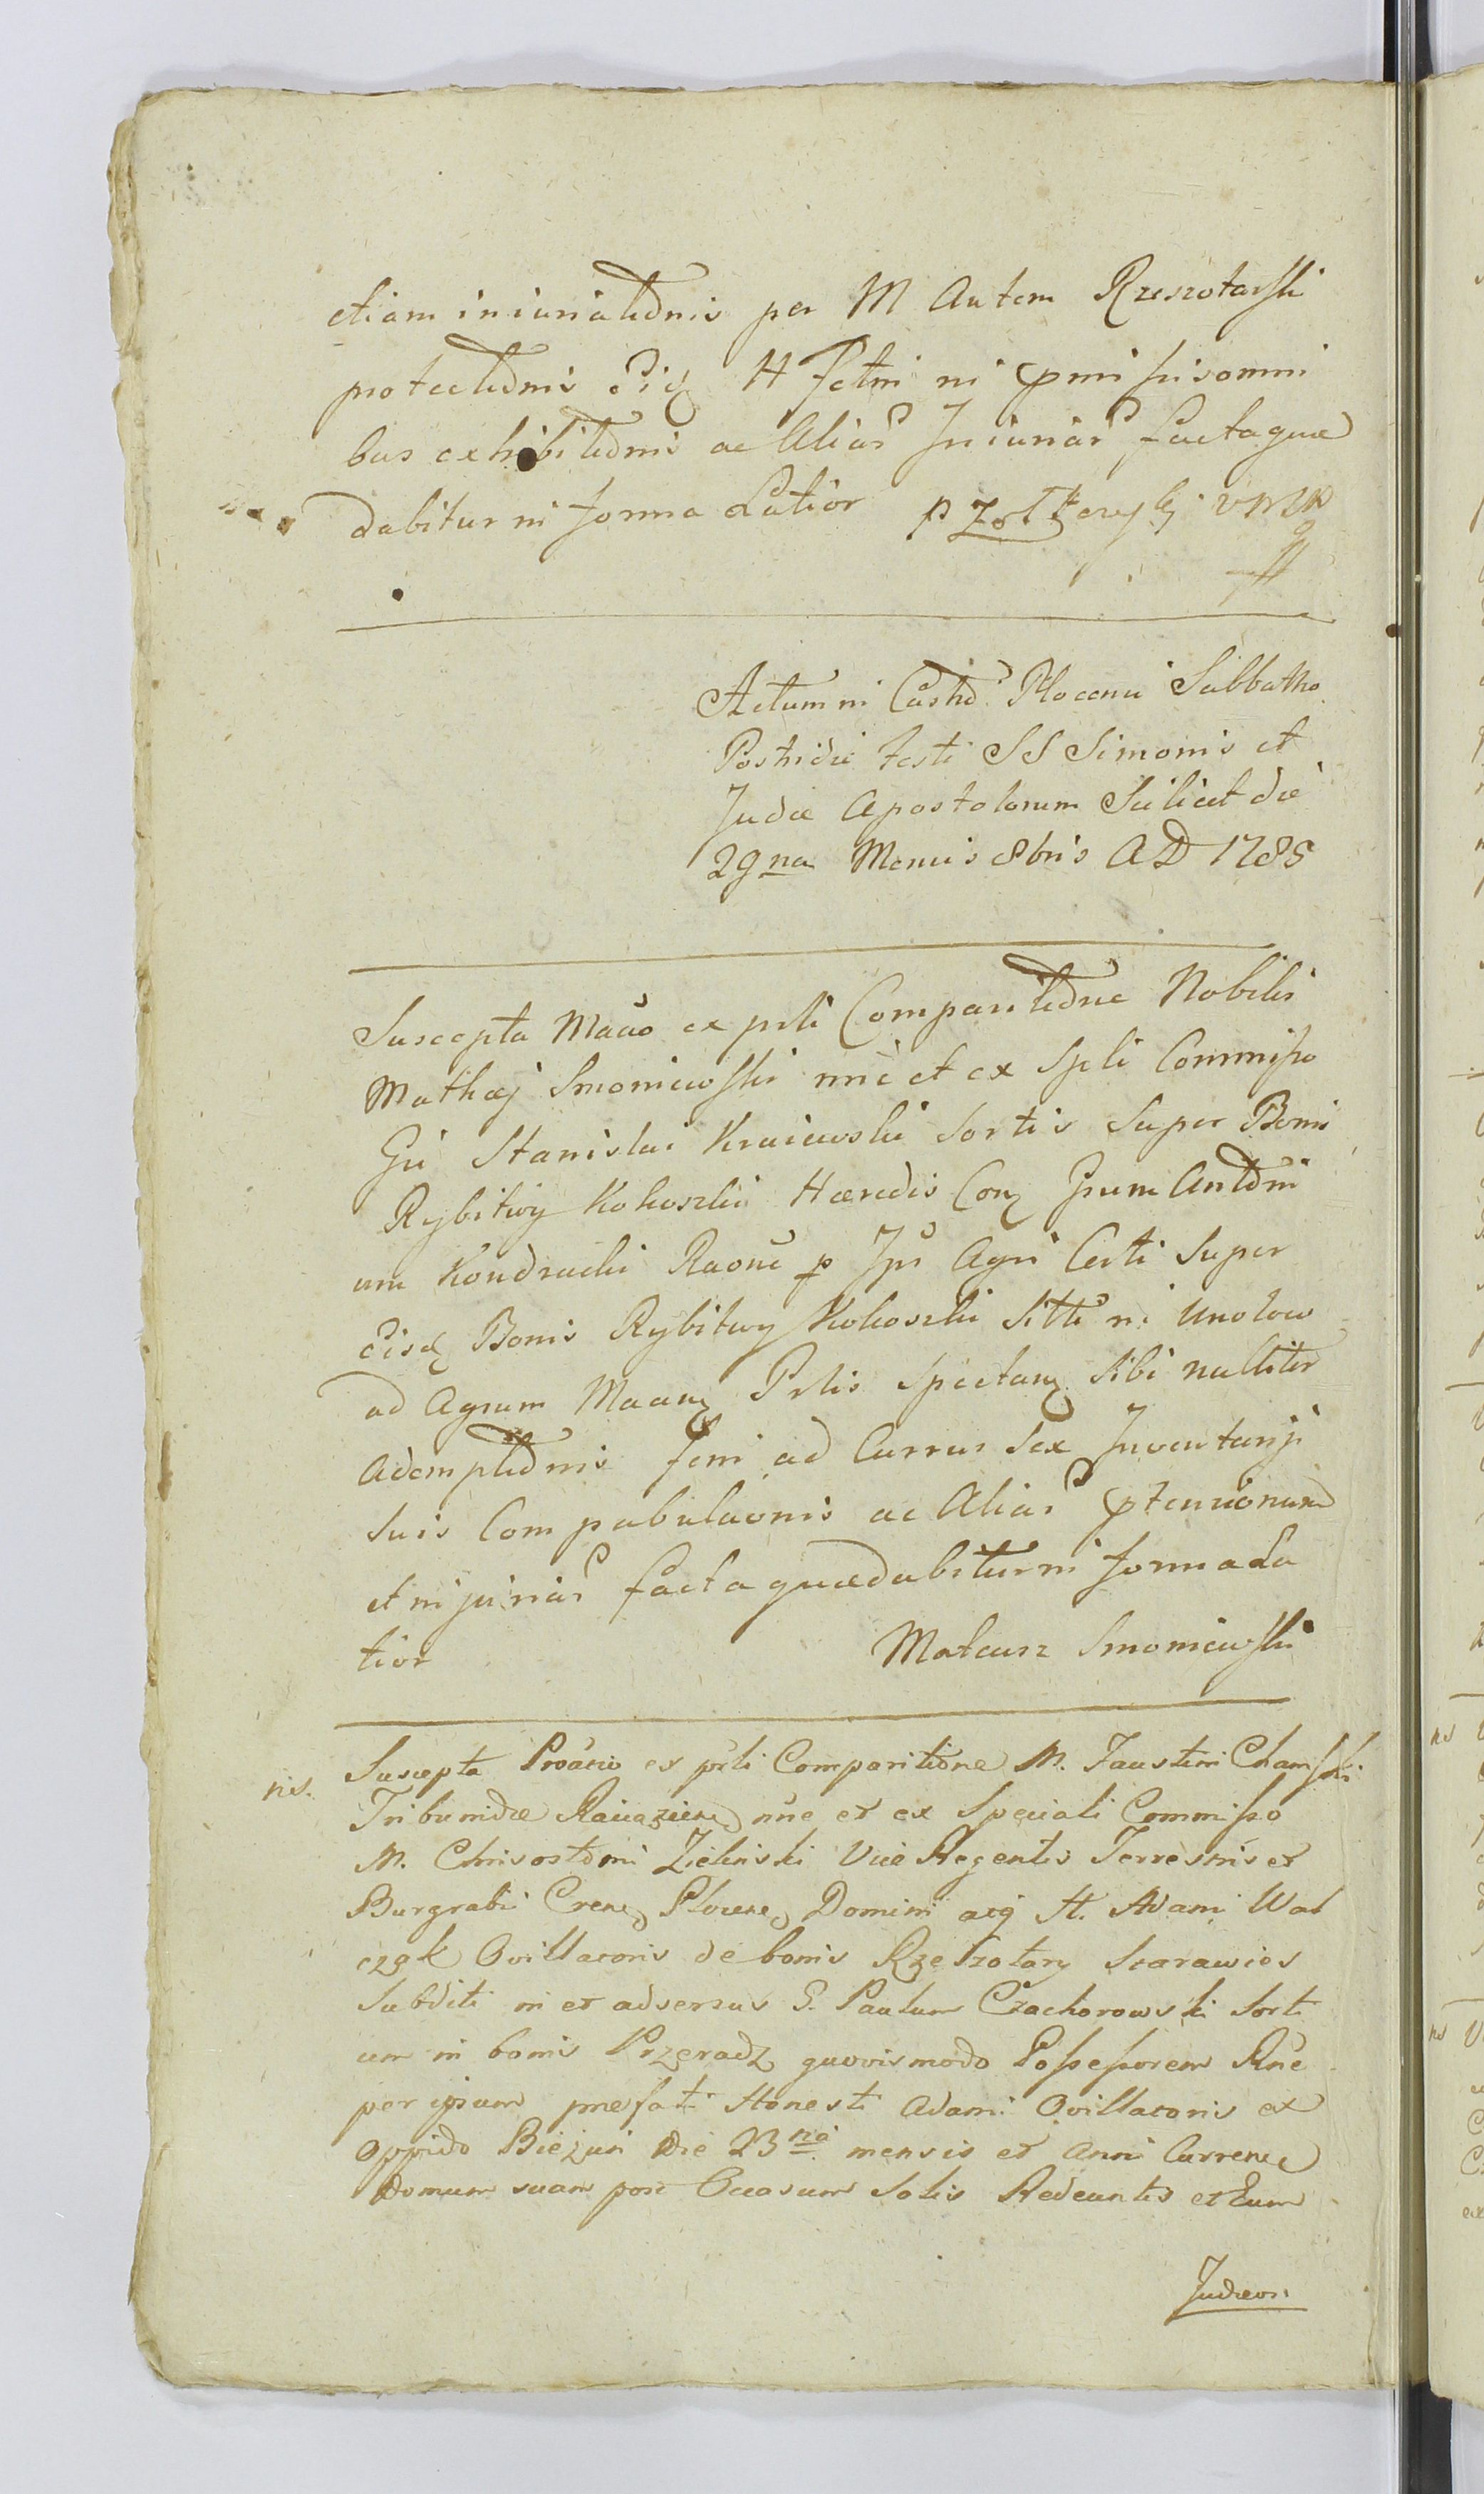 etiam iniuriatiõnis per M Autem Rzeszotarski
protectiõnis Eiq H fctni in pmissisomni
bus exhibitiõnis ac Aliar Iniuriar factaquæ
dabitur in forma Latior p
Actum in Castrõ Plocensi Sabbatho
Postridie Festi SS Simonis et
Judæ Apostolorum Scilicet die
29na Mensis 8bris AD 1785
Suscepta Maão ex prli Comparitiõne Nobilis
Mathæj Smoniewski nnè et ex Spli Commisso
Gsi Stanislai Kraiewski Sortis Super Bonis
Rybitwy Kokoszki Hæredis Conq Gsum Antõni
um Kondracki Raonẽ p Ips Agri Certi Super
Eisdq Bonis Rybitwy Kokoszki Sitti ni
ad Agrum Maanq Prlis Spectanq Sibi nulliter
Ademptiõnis feni ad Currus Sex Inventarij
Suis Com pabulaonis ac Aliar ptensionum
et injuriar facta quædabitur in forma La
tior Mateusz Smoniewski
ns. Suscepta Proãtio ex prli Comparitiõne M. Faustini Chamski
Tribunidæ Raciąziens nũc et ex Speciali Commisso
M. Chrisostõmi Zieliński Vice Regentis Terrestris et
Burgrabii Crens Plocens Domini atq H. Adami Wal
czak Ovillatoris de bonis Rzeszotary Starawies
Subditi in et adversus G. Paulum Czachorowski Sorti
um in bonis Przeradz quovismodo Possessorem Rne
per ipsum prefati Honesti Adami Ovillatoris ex
Oppido Bieżuń Die 23na mensis et Anni Currens
Domum suam post Occasum Solis Redeuntis et Eum
Judæor